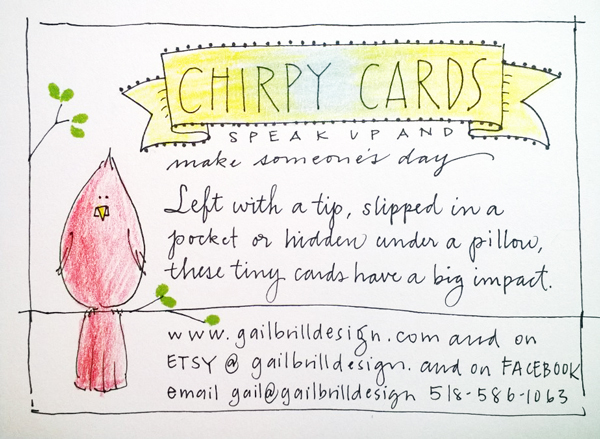 CHIRPY CARDS
SPEAK UP AND
make someone's day
Left with a tip, slipped in a
pocket or hidden under a pillow,
these tiny cards have a big impact.
www.gailbrilldesign.com and on
ETSY @ gailbrilldesign. and on FACEBOOK
email gail@gailbrilldesign 518-586-1063